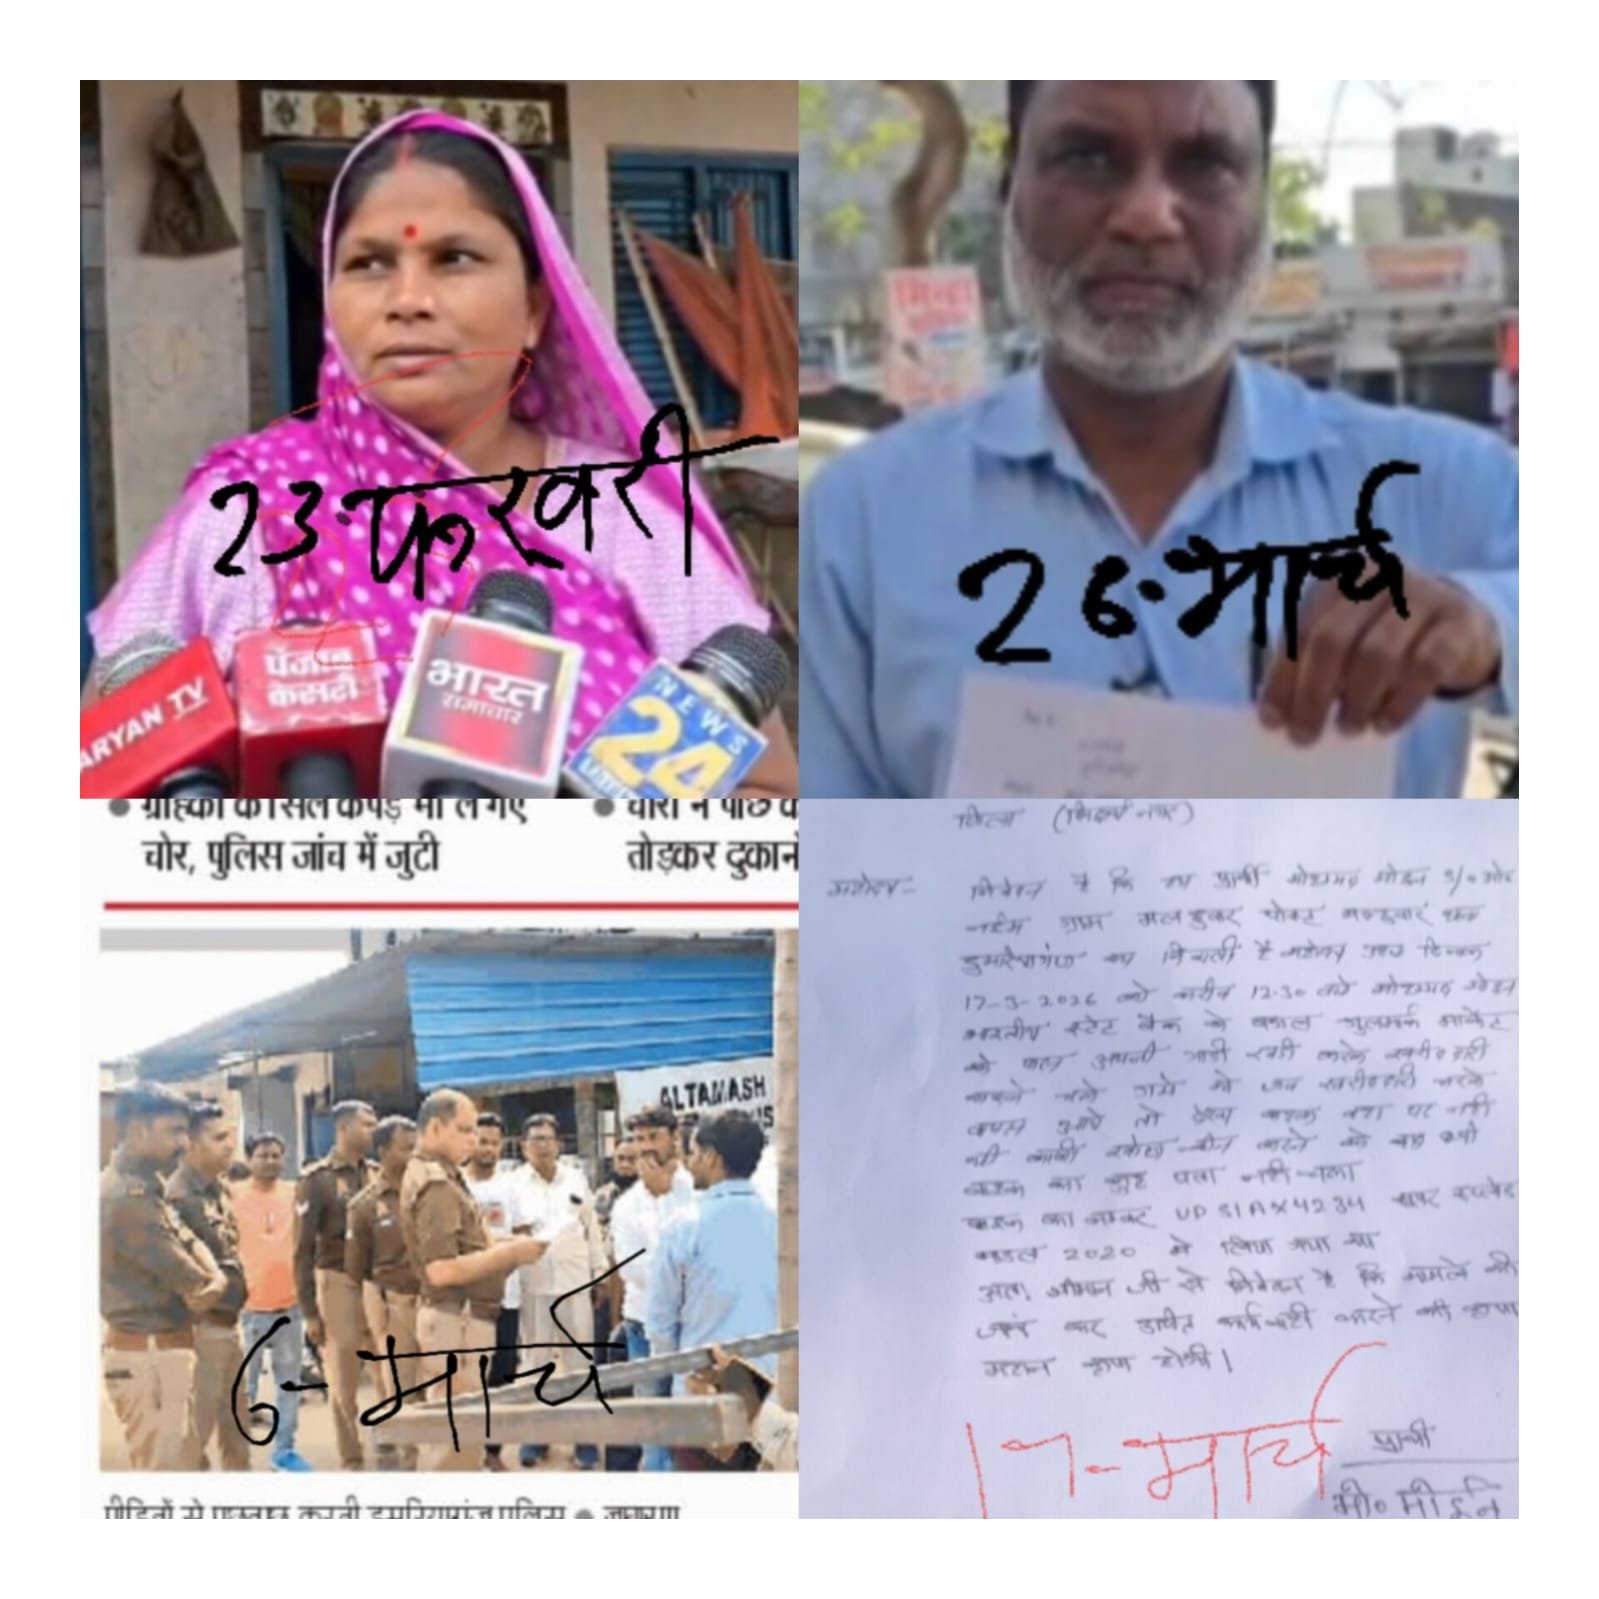 23. फरवरी
ARYAN TV
पंजाब
केसरी
भारत
समाचार
NEWS
24
26. मार्च
ग्राहकों के सिले कपड़े भी ले गए
चोर, पुलिस जांच में जुटी
चोरों ने पीछे
तोड़कर दुकान
ALTAMASH
6-मार्च
पीड़ितों से पूछताछ करती डुमरियागंज पुलिस ● जागरण
जिला (सिद्धार्थ नगर)
महोदय-
निवेदन है कि प्रार्थी मोहम्मद मोइन S/O
ग्राम पोस्ट
डुमरियागंज का निवासी है महोदय आज दिनांक
17-3-2026 को करीब 12:30 बजे मोहम्मद मोइन
भारतीय स्टेट बैंक के बगल गुलमर्ग मार्केट
के पास अपनी गाड़ी खड़ी करके खरीदारी
करने चले गये थे जब खरीदारी करके
वापस आये तो देखा बाइक वहा पर नहीं
थी काफी खोज बीन करने के बाद भी
बाइक का कुछ पता नहीं चला
बाइक का नम्बर UP 51AX4234 सुपर स्प्लेंडर
2020 में लिया गया था
अतः श्रीमान जी से निवेदन है कि मामले की
जांच कर उचित कार्यवाही करने की कृपा
महान कृपा होगी।
17-मार्च
प्रार्थी
मो० मोईन